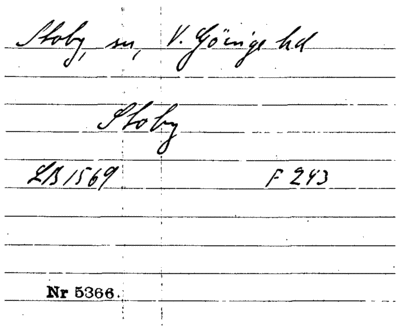 Stoby, sn, V. Göinge hd
Stoby
LB 1569 F 243
Nr 5366.